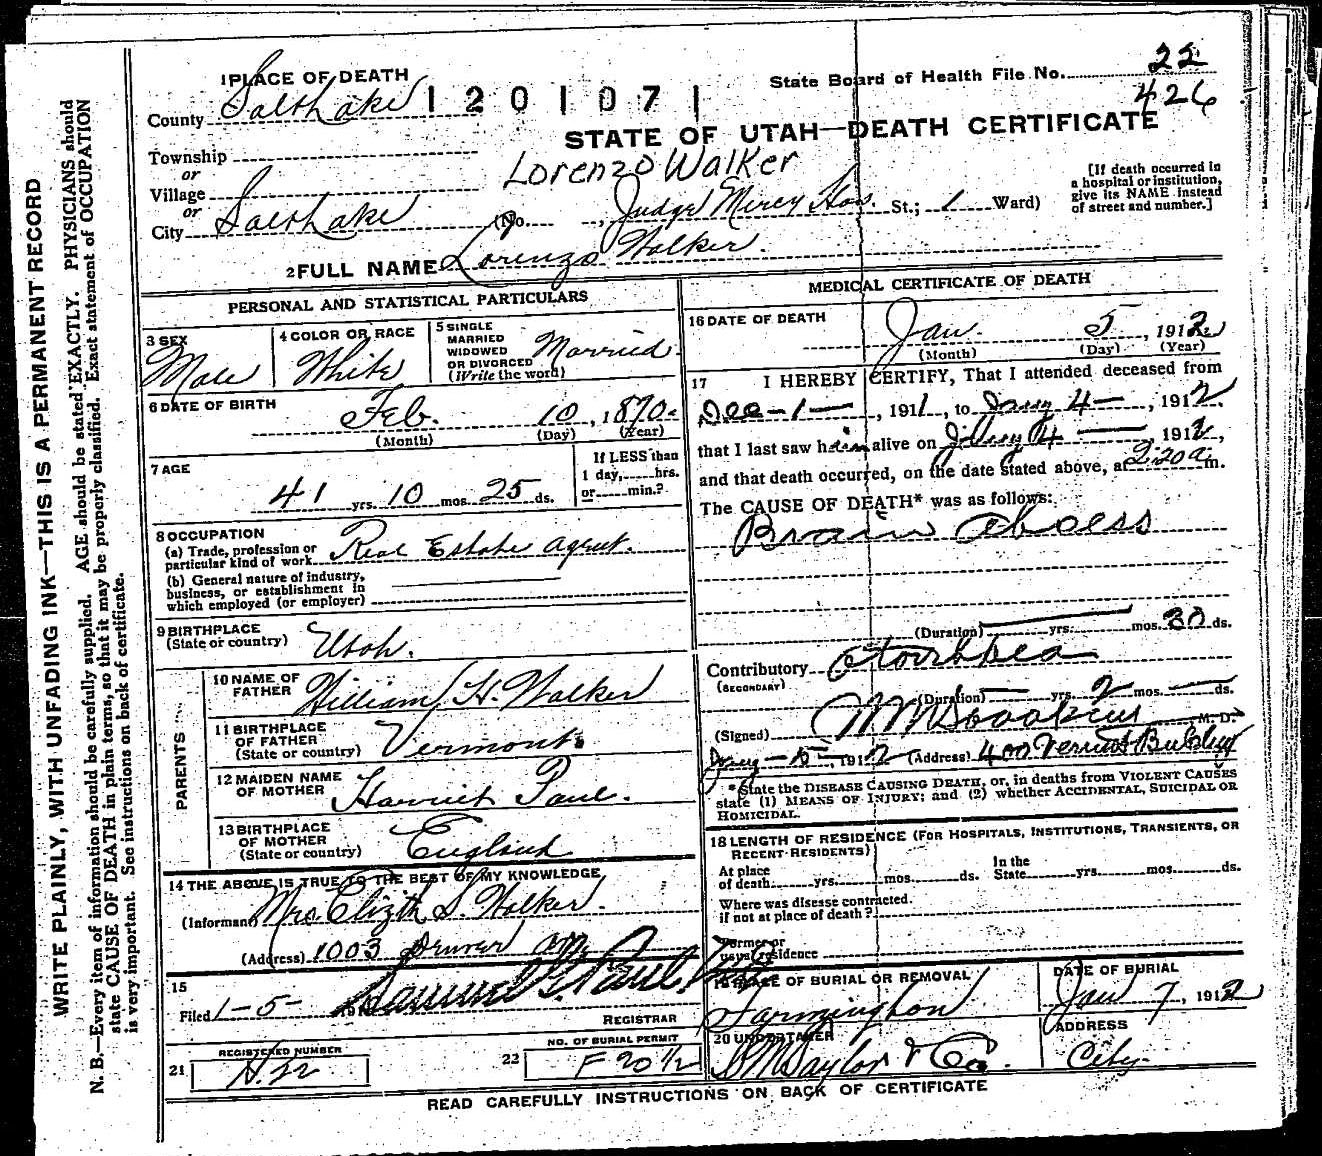 22
1 PLACE OF DEATH
State Board of Health File No.
426
County Salt Lake 1201071
STATE OF UTAH—DEATH CERTIFICATE
Township
or
Lorenzo Walker
[If death occurred in
a hospital or institution,
give its NAME instead
of street and number.]
Village
or
City Salt Lake (No. , Judge Mercy Hos. St.; 1 Ward)
2 FULL NAME Lorenzo Walker.
PERSONAL AND STATISTICAL PARTICULARS
3 SEX
Male
4 COLOR OR RACE
White
5 SINGLE
MARRIED
WIDOWED
OR DIVORCED
(Write the word)
Married.
6 DATE OF BIRTH
Feb. 10, 1870.
(Month) (Day) (Year)
7 AGE
41 yrs. 10 mos. 25 ds.
If LESS than
1 day, hrs.
or min.?
8 OCCUPATION
(a) Trade, profession or
particular kind of work Real Estate Agent.
(b) General nature of industry,
business, or establishment in
which employed (or employer)
9 BIRTHPLACE
(State or country) Utah.
PARENTS
10 NAME OF
FATHER William H. Walker
11 BIRTHPLACE
OF FATHER
(State or country) Vermont.
12 MAIDEN NAME
OF MOTHER Harriet Paul.
13 BIRTHPLACE
OF MOTHER
(State or country) England
14 THE ABOVE IS TRUE TO THE BEST OF MY KNOWLEDGE
(Informant) Mrs. Elizith S. Walker.
(Address) 1003 Denver
15
Filed 1-5- 191 Samuel G. Paul
REGISTRAR
REGISTERED NUMBER
21 H.22
NO. OF BURIAL PERMIT
22 F 20 1/2
MEDICAL CERTIFICATE OF DEATH
16 DATE OF DEATH
Jan. 5, 1912.
(Month) (Day) (Year)
17 I HEREBY CERTIFY, That I attended deceased from
Dec-1-, 1911, to Jany 4-, 1912,
that I last saw him alive on Jany 4 — 1912,
and that death occurred, on the date stated above, at 2:20 a m.
The CAUSE OF DEATH* was as follows:
Brain abcess
(Duration) yrs. mos. 30 ds.
Contributory Otorrhea
(SECONDARY)
(Duration) — yrs. 2 mos. — ds.
(Signed) M. D.
Jany-5-, 1912 (Address) 400 Bldg
*State the DISEASE CAUSING DEATH, or, in deaths from VIOLENT CAUSES
state (1) MEANS OF INJURY; and (2) whether ACCIDENTAL, SUICIDAL OR
HOMICIDAL.
18 LENGTH OF RESIDENCE (FOR HOSPITALS, INSTITUTIONS, TRANSIENTS, OR
RECENT RESIDENTS)
At place
of death yrs. mos. ds.
In the
State yrs. mos. ds.
Where was disease contracted.
if not at place of death?
Former or
usual residence
19 PLACE OF BURIAL OR REMOVAL
Farmington
DATE OF BURIAL
Jan 7, 1912
20 UNDERTAKER
S M Taylor & Co.
ADDRESS
City.
READ CAREFULLY INSTRUCTIONS ON BACK OF CERTIFICATE
WRITE PLAINLY, WITH UNFADING INK—THIS IS A PERMANENT RECORD
N. B.—Every item of information should be carefully supplied. AGE should be stated EXACTLY. PHYSICIANS should
state CAUSE OF DEATH in plain terms, so that it may be properly classified. Exact statement of OCCUPATION
is very important. See instructions on back of certificate.